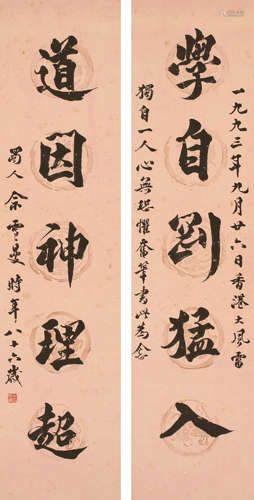 學自剛猛入
一九九三年九月廿六日香港大風雷
獨自一人心無恐懼奮筆書此為念
道因神理超
蜀人佘雪曼時年八十六歲